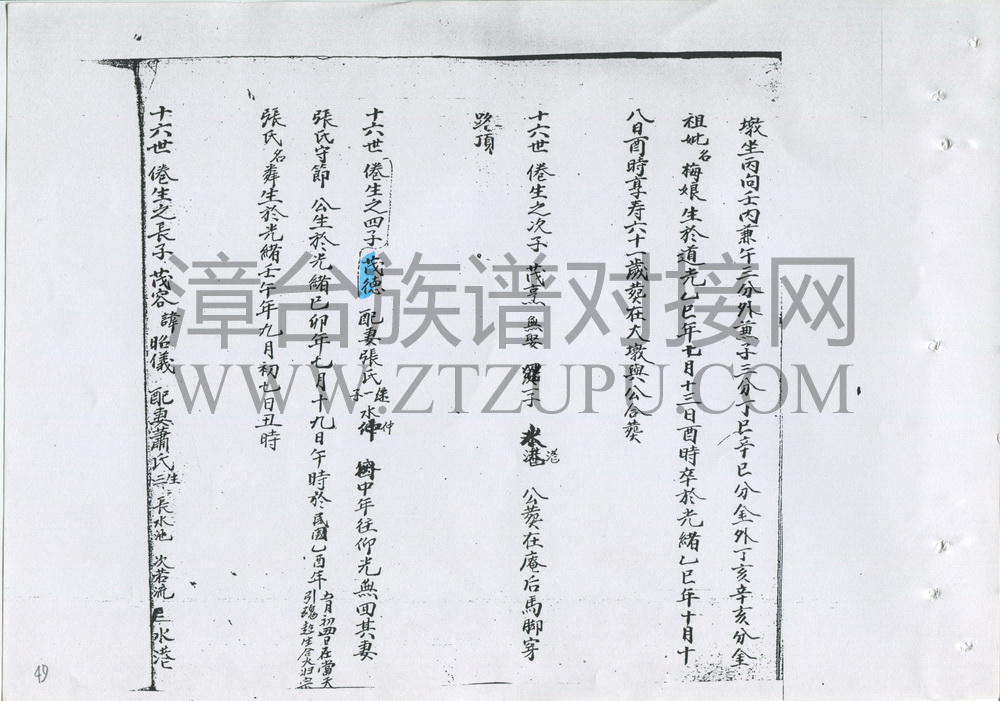 墩坐丙向壬內兼午三分外兼子三分丁巳辛巳分金外丁亥辛亥分金
祖妣名梅娘生於道光乙巳年七月十三日酉時卒於光緒乙巳年十月十
八日酉時享寿六十一歲葬在大墩與公合葬
十六世 倦生之次子 茂烹無娶 一子 水港 港 公葬在庵后馬脚穿
路頂
十六世 倦生之四子 茂德 配妻張氏 一水仲 仲 中年往仰光無回其妻
張氏守節 公生於光緒己卯年七月十九日午時於民國乙酉年 五月初四日在當天
引魂 合火归宗
張氏名舜生於光緒壬午年九月初七日丑時
十六世 倦生之長子 茂容諱昭儀 配奧蕭氏生三 長水池 次若流 三水港
漳台族谱对接网
WWW.ZTZUPU.COM
49